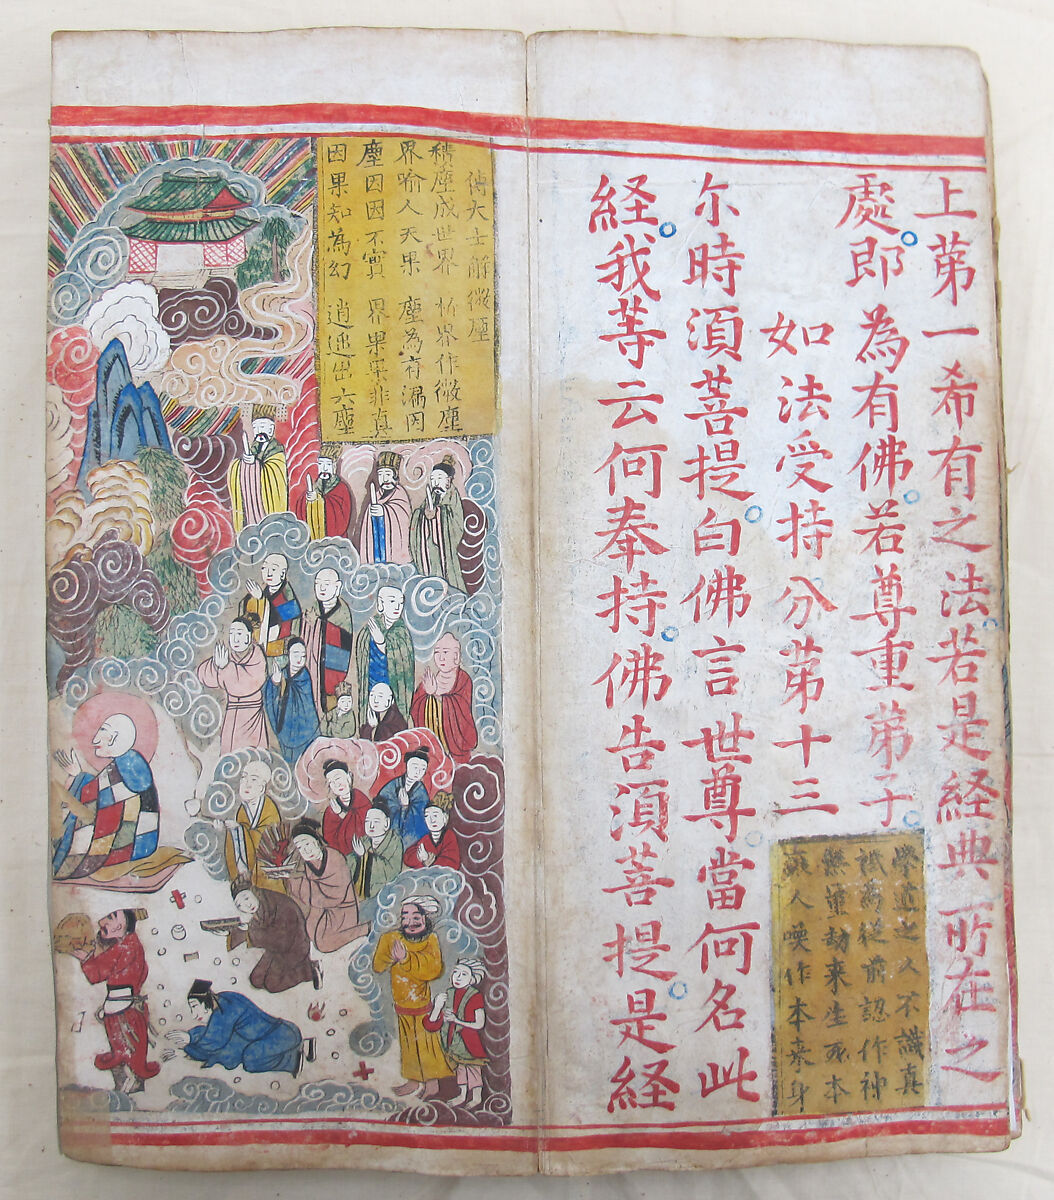 上苐一希有之法若是経典所在之
處。即為有佛。若尊重苐子。
學道之人不識真
祇為從前認作神
無量劫來生死本
人喚作本來身
如法受持分苐十三
尔時湏菩提。白佛言世尊。當何名此
経。我等云何奉持。佛告湏菩提。是経
傅大士解微塵
積塵成世界 析界作微塵
界喻人天果 塵為有漏因
塵因因不實 界果果非真
因果知為幻 逍遥出六塵